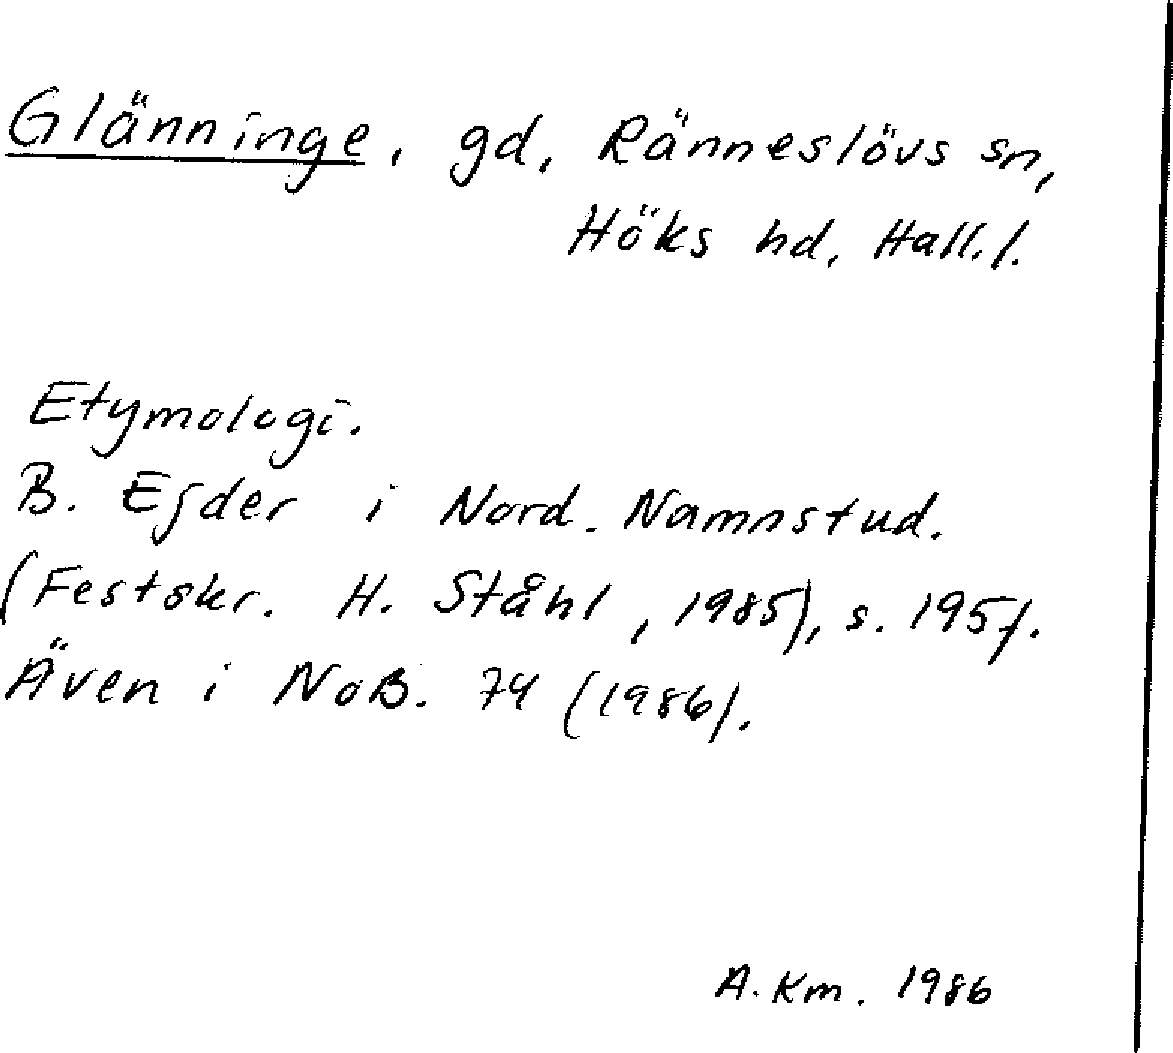 Glänninge, gd, Ränneslövs sn,
Höks hd, Hall.l.
Etymologi.
B. Ejder i Nord. Namnstud.
(Festskr. H. Ståhl, 1985), s. 195f.
Även i NoB. 74 (1986).
A. Km. 1986